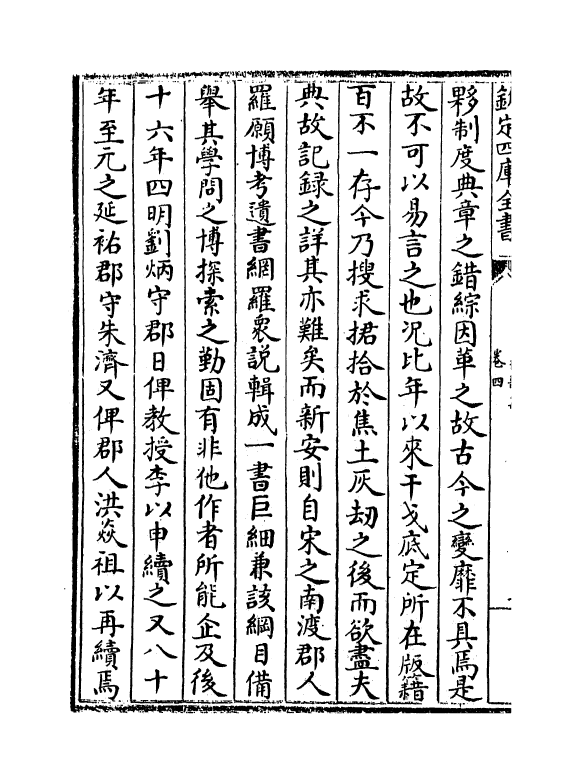 欽定四庫全書
卷四
夥制度典章之錯綜因革之故古今之變靡不具焉是
故不可以易言之也况比年以來干戈底定所在版籍
百不一存今乃搜求捃拾於焦土灰刼之後而欲盡夫
典故記録之詳其亦難矣而新安則自宋之南渡郡人
羅願博考遺書網羅衆說輯成一書巨細兼該綱目備
舉其學問之博探索之勤固有非他作者所能企及後
十六年四明劉炳守郡日俾教授李以申續之又八十
年至元之延祐郡守朱濟又俾郡人洪焱祖以再續焉